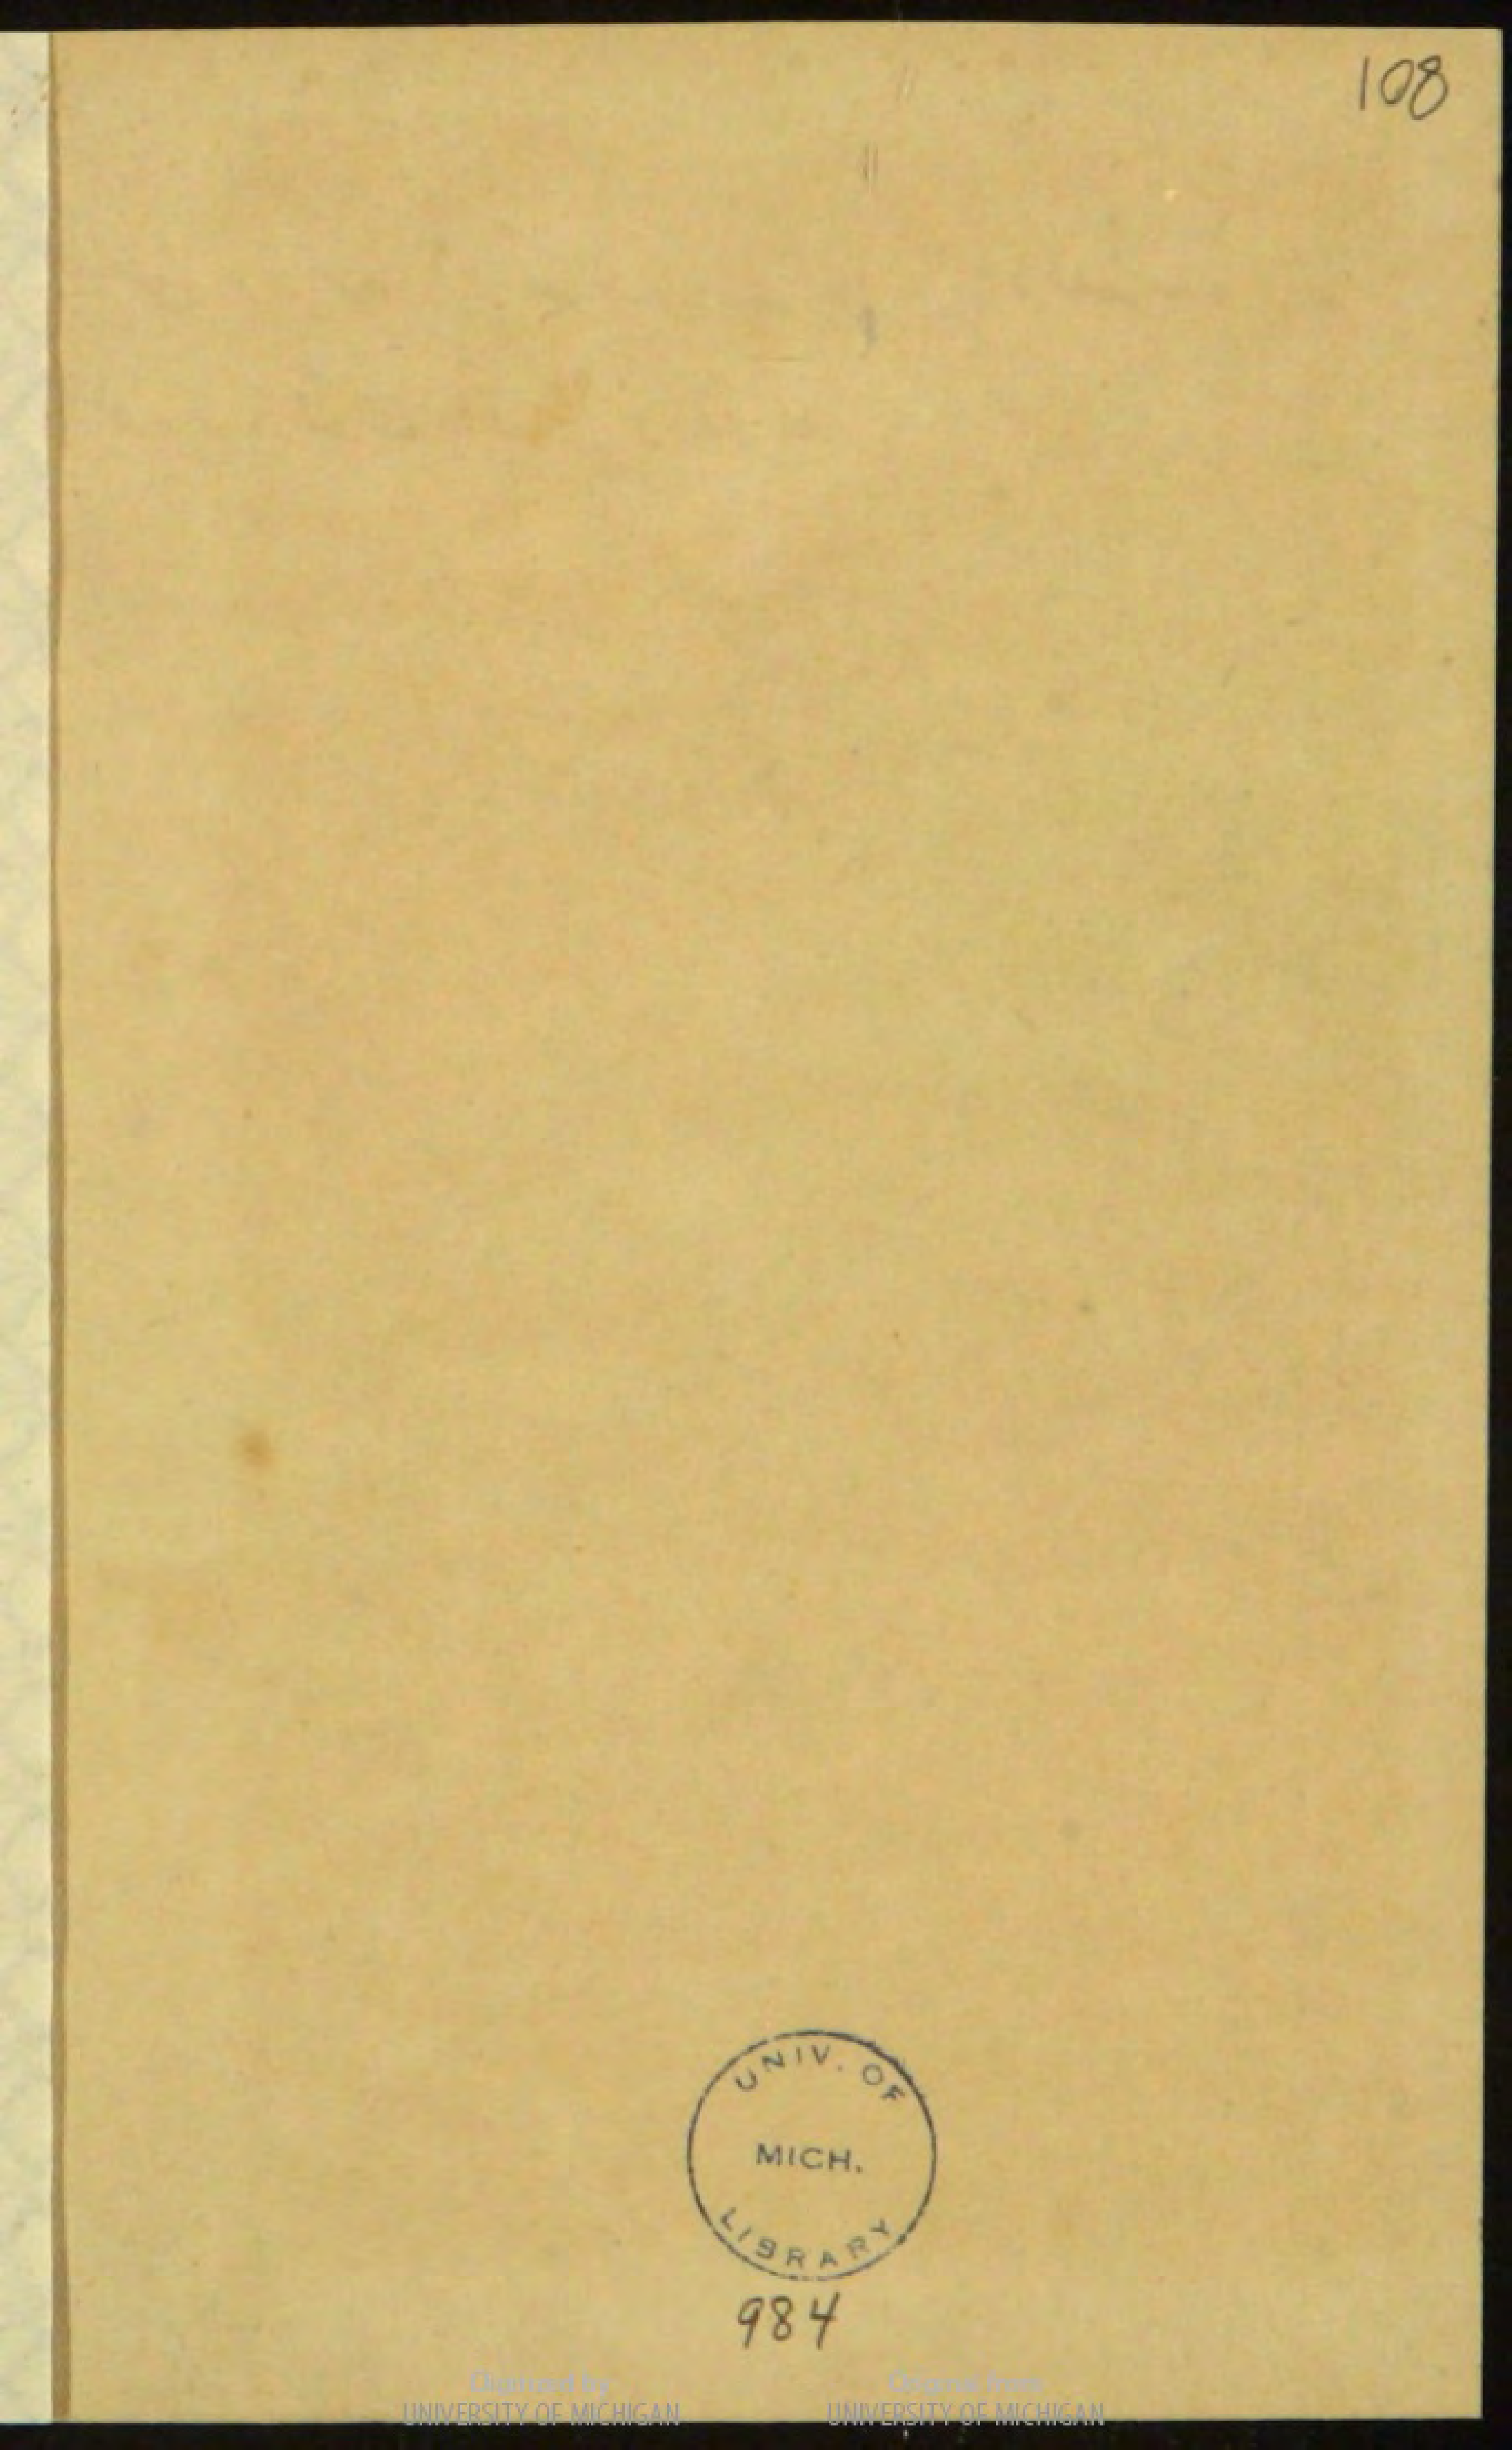 108
UNIV. OF
MICH.
LIBRARY
984
Digitized by
UNIVERSITY OF MICHIGAN
Original from
UNIVERSITY OF MICHIGAN